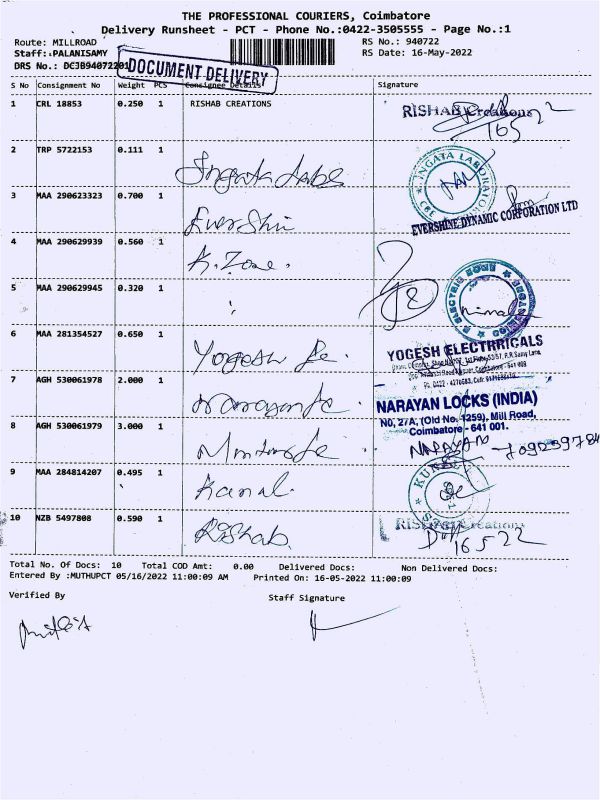 THE PROFESSIONAL COURIERS, Coimbatore
Delivery Runsheet - PCT - Phone No.:0422-3505555 - Page No.:1
Route: MILLROAD
RS No.: 940722
Staff: PALANISAMY
RS Date: 16-May-2022
DRS No.: DCJB94072201
DOCUMENT DELIVERY
S No Consignment No Weight PCS Consignee Details Signature
1 CRL 18853 0.250 1 RISHAB CREATIONS
RISHAB Creations
2 TRP 5722153 0.111 1
Ingata Labs
INGATA LABORATOR
CBE
3 MAA 290623323 0.700 1
Evershin
EVERSHINE DYNAMIC CORPORATION LTD
4 MAA 290629939 0.560 1
K. Zone.
5 MAA 290629945 0.320 1
ELECTRIC ZONE
nimala
6 MAA 281354527 0.650 1
Yogesh Le.
YOGESH ELECTRRICALS
7 AGH 530061978 2.000 1
Narayan Le
NARAYAN LOCKS (INDIA)
NO, 27A, (Old No. 1259), Mill Road,
Coimbatore - 641 001.
8 AGH 530061979 3.000 1
NARAYAN
9 MAA 284814207 0.495 1
Kamal.
10 NZB 5497808 0.590 1
Rishab.
RISHAB Creations
16 5 22
Total No. Of Docs: 10 Total COD Amt: 0.00 Delivered Docs: Non Delivered Docs:
Entered By :MUTHUPCT 05/16/2022 11:00:09 AM Printed On: 16-05-2022 11:00:09
Verified By
Staff Signature